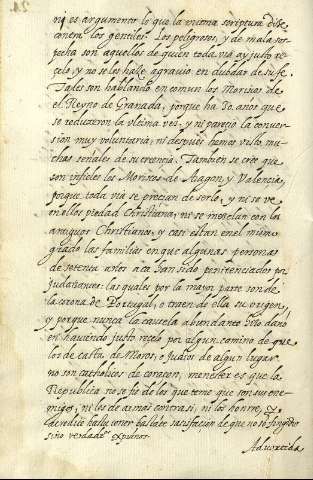 ni es argumento lo que la misma scriptura dise
onem los gentiles. Los peligrosos, y de mala sos-
pecha son aquellos de quien toda via ay justo re-
çelo, y no se los haze agravio en dubdar de su fe.
Tales son hablando en comun los Moriscos de
el Reyno de Granada, porque ha 30 años que
se reduxeron la ultima vez, y ni pareçio la conver-
sion muy voluntaria, ni despues hemos visto mu-
chas señales de su creencia. Tambien se cree que
son infieles los Moriscos de Aragon y Valencia,
porque toda via se precian de serlo, y ni se ve
en ellos piedad Christiana, ni se mezclan con los
antiguos Christianos, y casi estan en el mismo
grado las familias en que algunas personas
de setenta años aca han sido penitenciados por
Judaizantes: las quales por la mayor parte son de
la corona de Portugal, o traen de ella su origen,
y porque nunca la cautela abundante hizo daño
en haviendo justo reçelo por algun camino de que
los de casta de Moros, o Judios de algun lugar
no son catholicos de coraçon, menester es que la
Republica no se fie de los que teme que son sus ene-
migos, ni les de armas contra si, ni los honre, y
acredite hasta tener bastante satisfaçion de que no es fingido
sino verdadero
Advertida